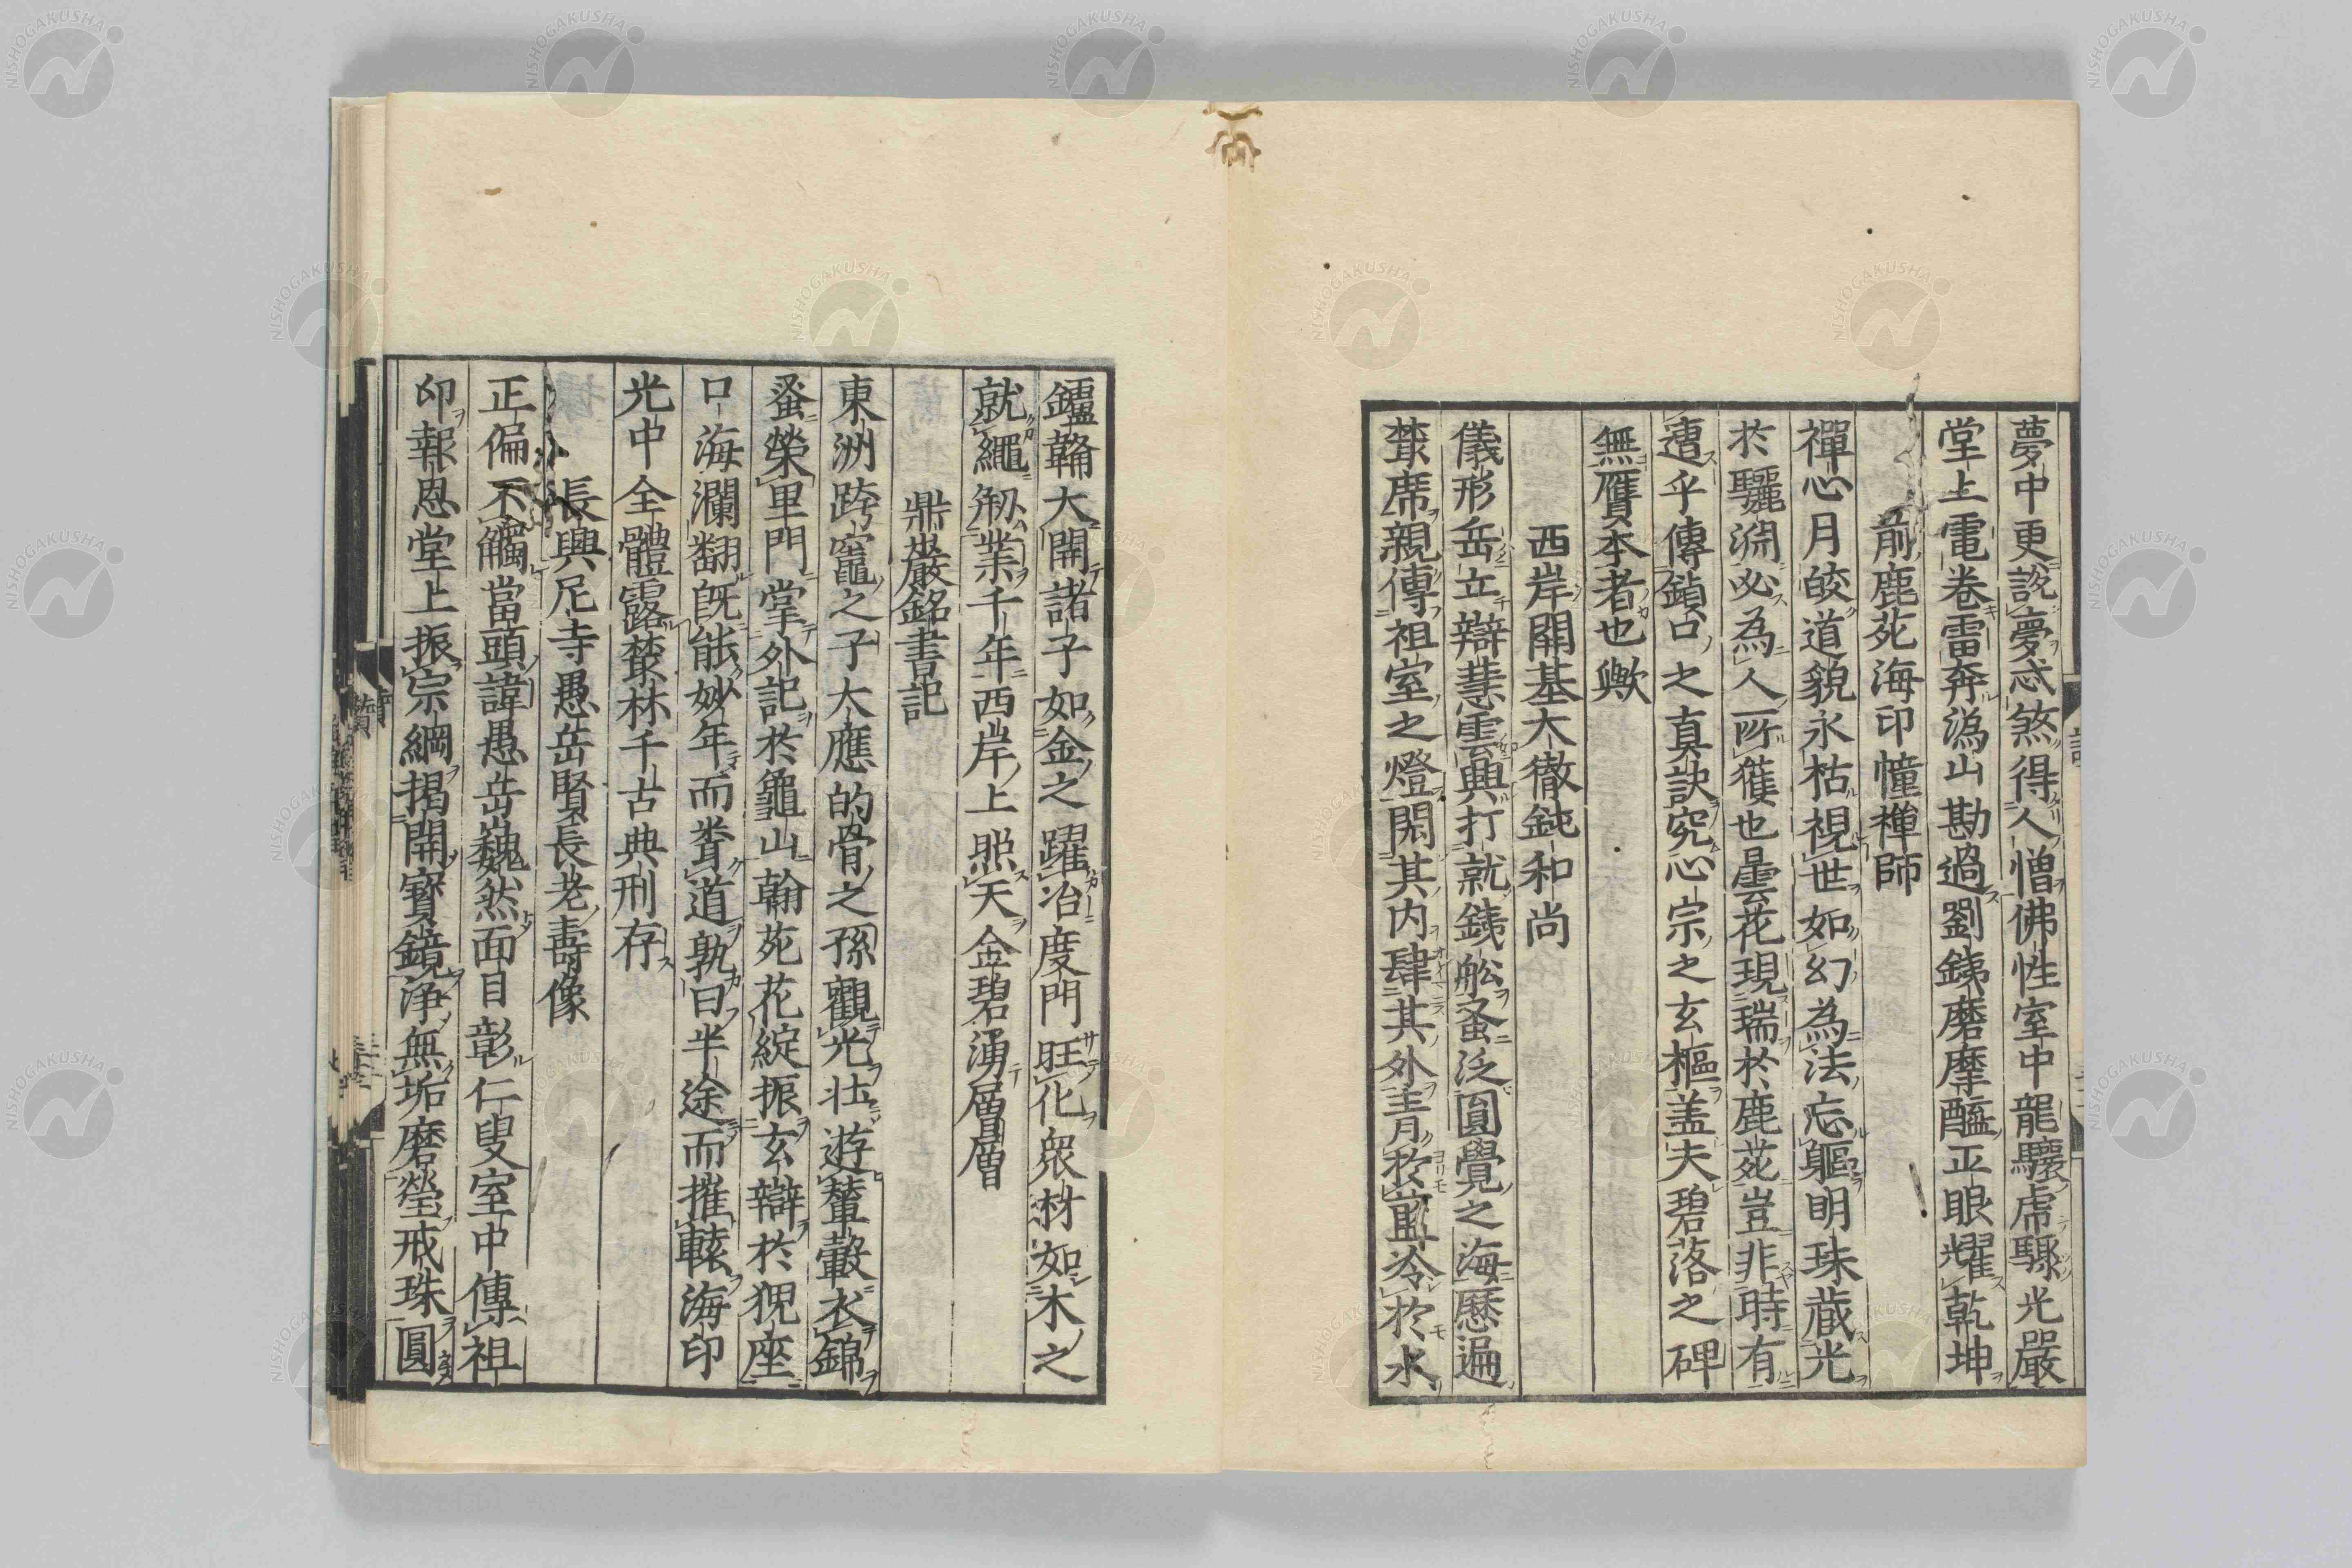 夢中更説夢忒煞得人憎佛性室中龍驤虎驟光嚴
堂上電卷雷奔溈山勘過劉鉄磨摩醯正眼耀乾坤
前鹿苑海印幢禅師
禪心月皎道貌永枯視世如幻為法忘軀明珠藏光
於驪淵必為人所獲也曇花現瑞於鹿苑豈非時有
遭乎傳鎖口之真訣究心宗之玄樞盖夫碧落之碑
無贋本者也歟
西岸開基大徹鈍和尚
儀形岳立辯慧雲興打就鉄舩蚤泛圓覺之海歷遍
叢席親傳祖室之燈閎其内肆其外青於藍冷於水
鑪鞴大開諸子如金之躍冶度門旺化衆材如木之
就繩剏業千年西岸上照天金碧湧層層
鼎巖銘書記
東洲跨竈之子大應的骨之孫觀光壮遊輦轂衣錦
蚤榮里門掌外記於龜山翰苑花綻振玄辯於猊座
口海瀾翻既能妙年而耆道孰曰半途而摧轅海印
光中全體露叢林千古典刑存
長興尼寺愚岳賢長老壽像
正偏不觸當頭諱愚岳巍然面目彰仁叟室中傳祖
印報恩堂上振宗綱揭開寳鏡淨無垢磨瑩戒珠圓
NISHOGAKUSHA